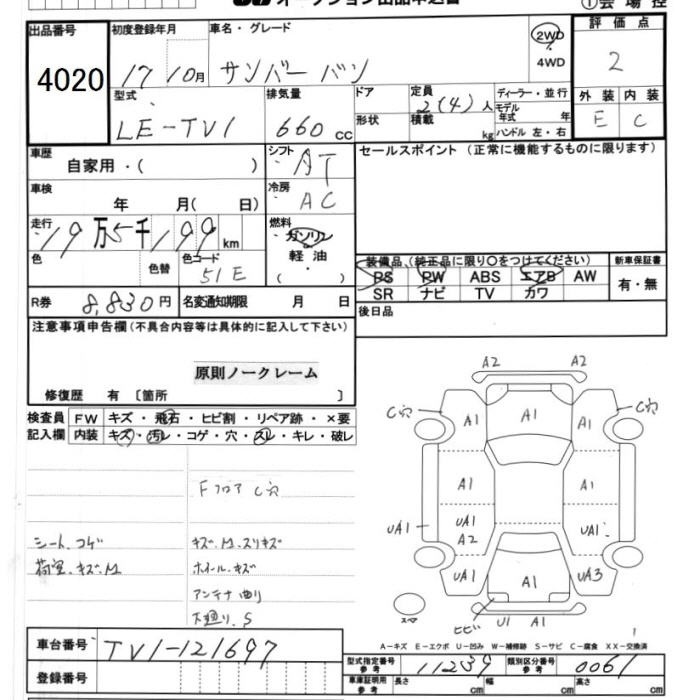 オークション出品申込書 ①会場控
出品番号 初度登録年月 車名・グレード 2WD 4WD 評価点
4020 17 10月 サンバー バン 2
型式 排気量 ドア 定員 ディーラー・並行 外装 内装
LE-TV1 660 cc 形状 2(4)人 積載 kg モデル年式 年 ハンドル 左・右 E C
車歴 自家用・( ) シフト AT セールスポイント (正常に機能するものに限ります)
車検 年 月( 日) 冷房 AC
走行 19万5千199km 燃料 ガソリン・軽油・( )
色 色替 色コード 51E
装備品(純正品に限り○をつけてください) 新車保証書
PS PW ABS エアB AW 有・無
SR ナビ TV カワ
R券 8,830円 名変通知期限 月 日 後日品
注意事項申告欄(不具合内容等は具体的に記入して下さい)
原則ノークレーム
修復歴 有 〔箇所 〕
検査員 FW キズ・飛石・ヒビ割・リペア跡・×要
記入欄 内装 キズ・汚レ・コゲ・穴・スレ・キレ・破レ
Fフロア C穴
シート.コゲ キズ.M.スリキズ
荷室.キズ.M ホイール.キズ
アンテナ曲り
下廻り.S
A2 A2
C穴 A1 A1 A1 C穴
A1 A1
UA1 UA1 A2 UA1
UA1 A1 UA3
スマ ヒビ U1 A1
1
A-キズ E-エクボ U-凹み W-補修跡 S-サビ C-腐食 XX-交換済
車台番号 TV1-121697
型式指定番号 参考 11239 類別区分番号 参考 0061
登録番号 車庫証明用 参考 長さ cm 幅 cm 高さ cm